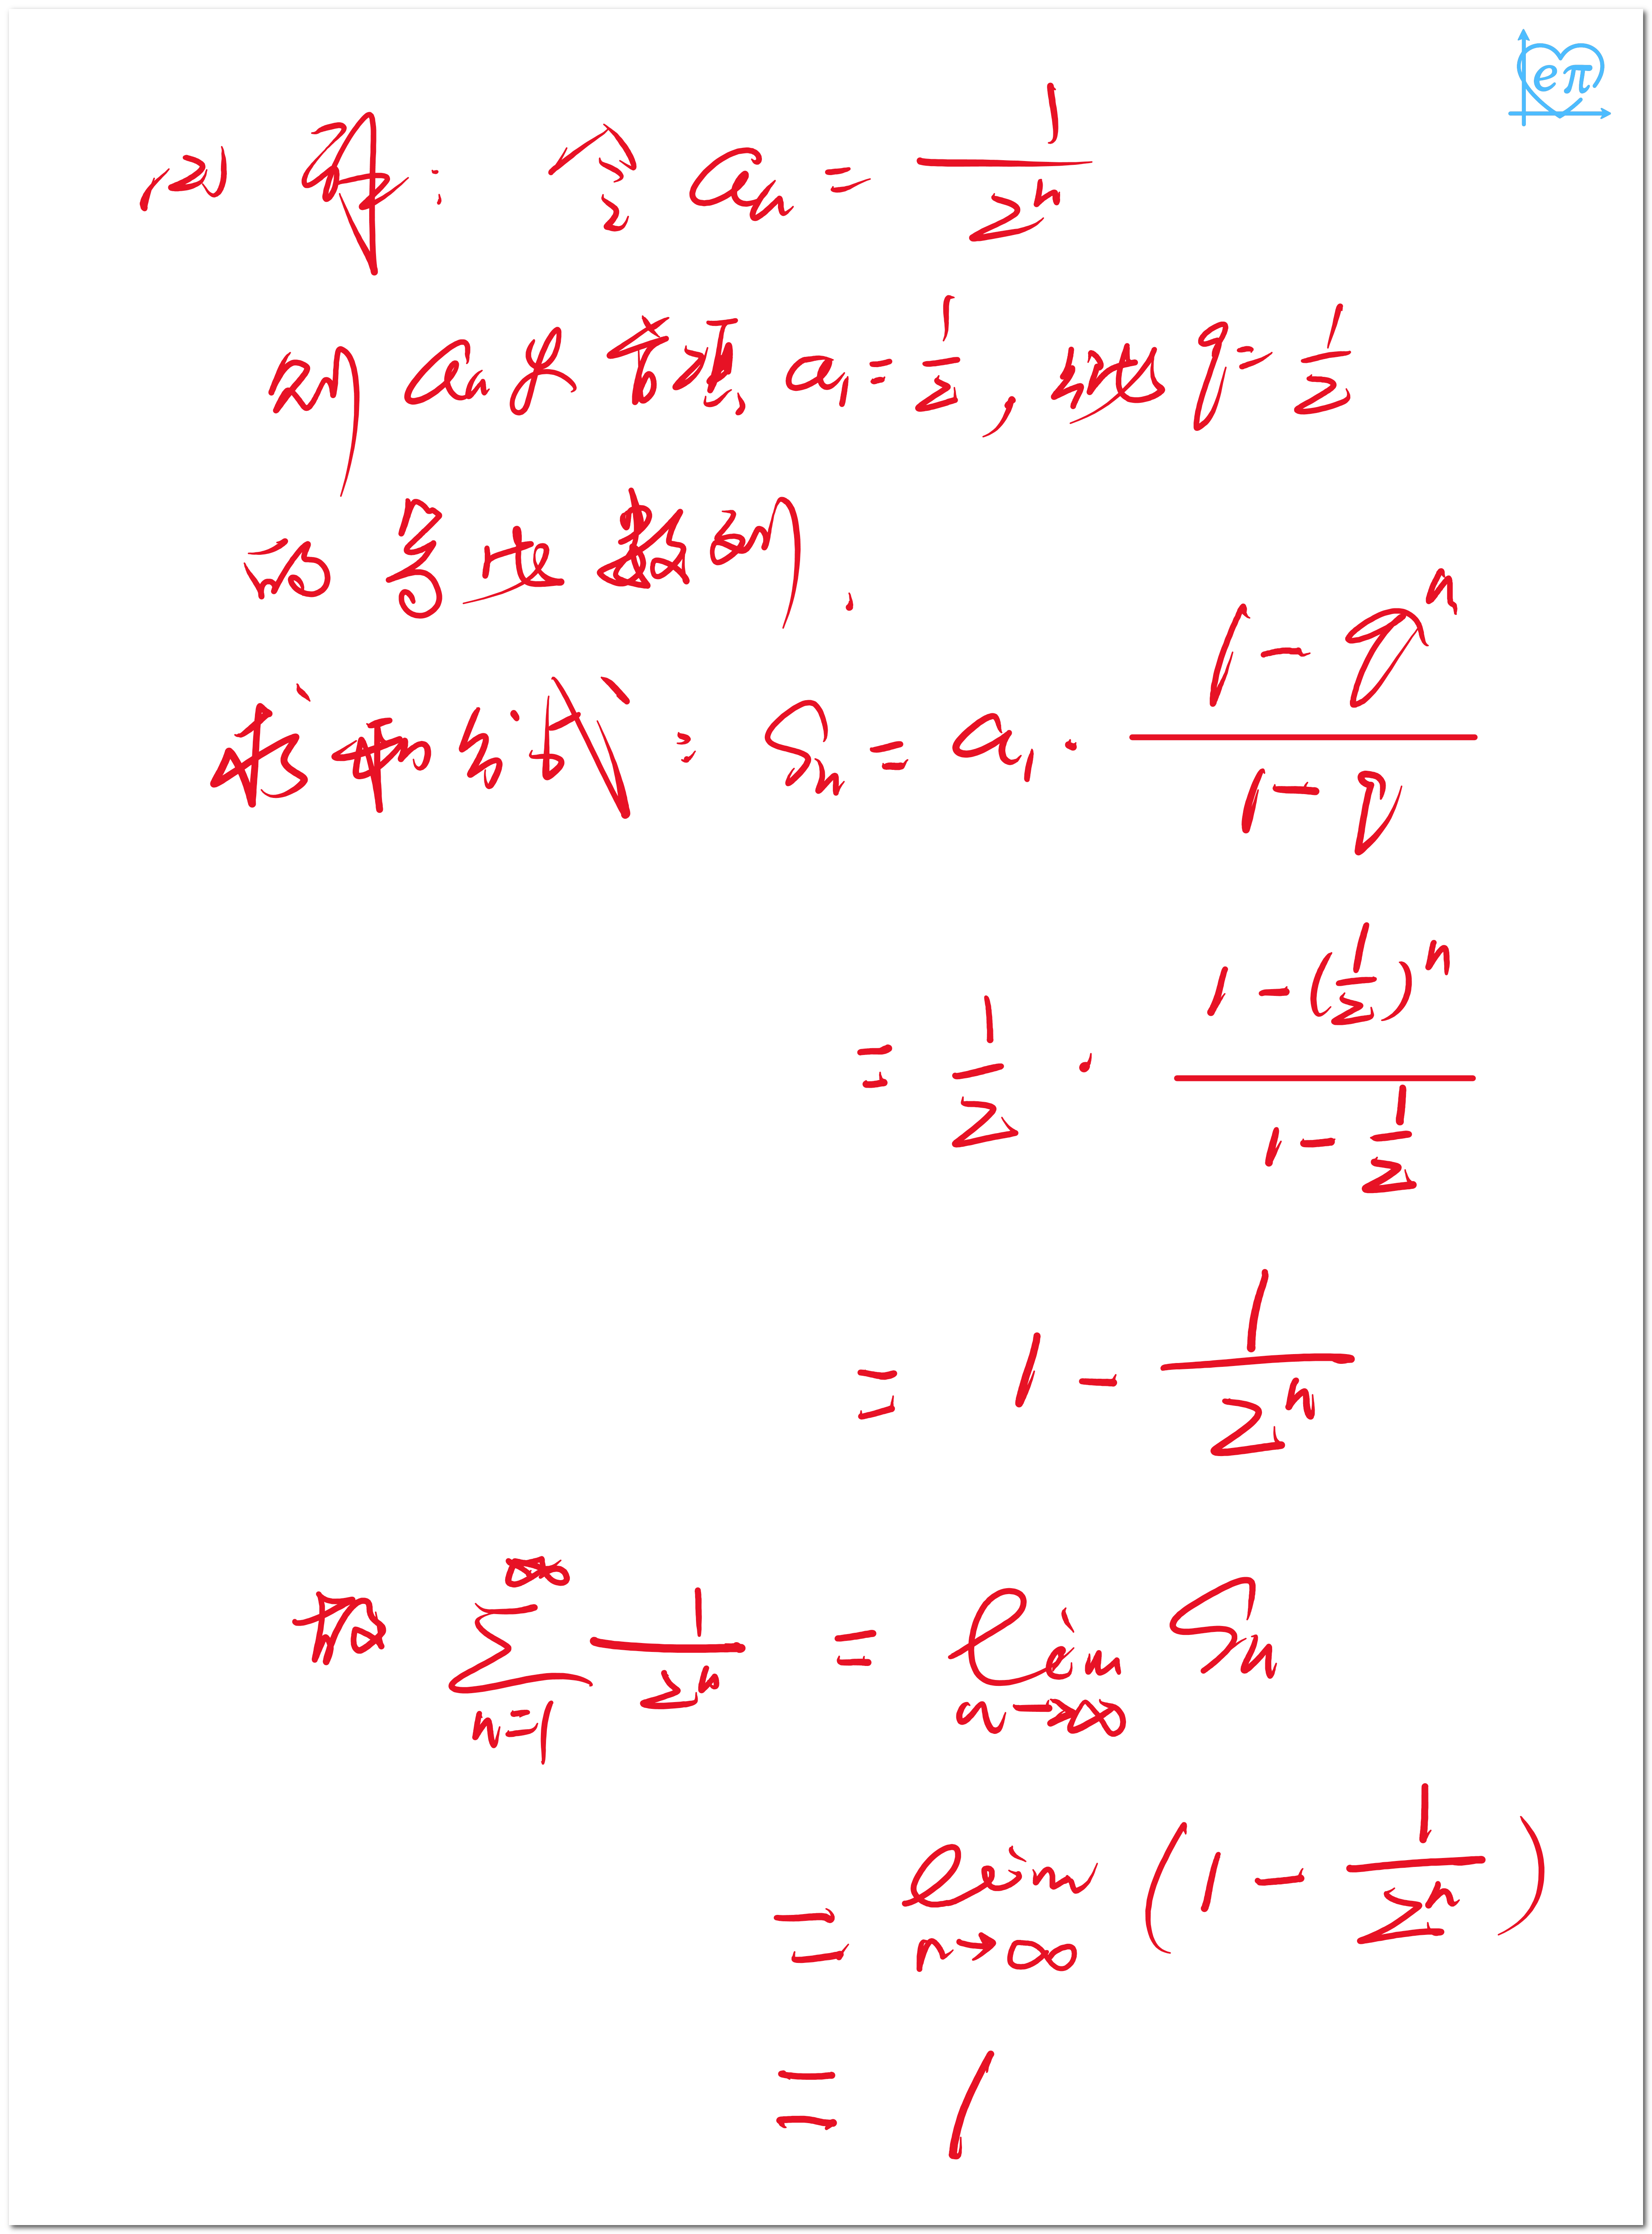 eπ
(2) 解: 令 aₙ = 1/2ⁿ
则 aₙ是首项 a₁ = 1/2, 公比 q = 1/2
的等比数列.
求和公式: Sₙ = a₁ · (1 - qⁿ)/(1 - q)
= 1/2 · (1 - (1/2)ⁿ)/(1 - 1/2)
= 1 - 1/2ⁿ
故 ∑_{n=1}^{∞} 1/2ⁿ = lim_{n→∞} Sₙ
= lim_{n→∞} (1 - 1/2ⁿ)
= 1